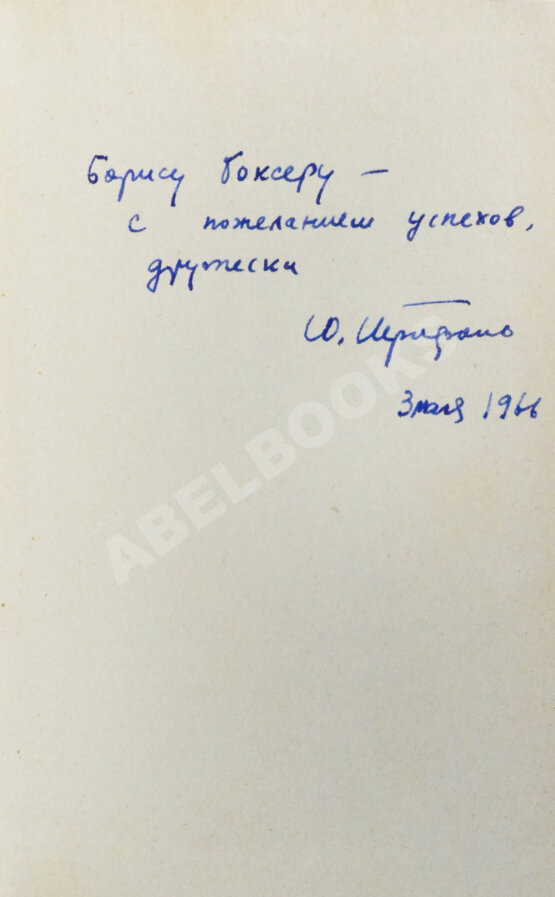 Борису Боксеру —
с пожеланием успехов,
дружески
Ю.
3 мая 1966
ABELBOOKS